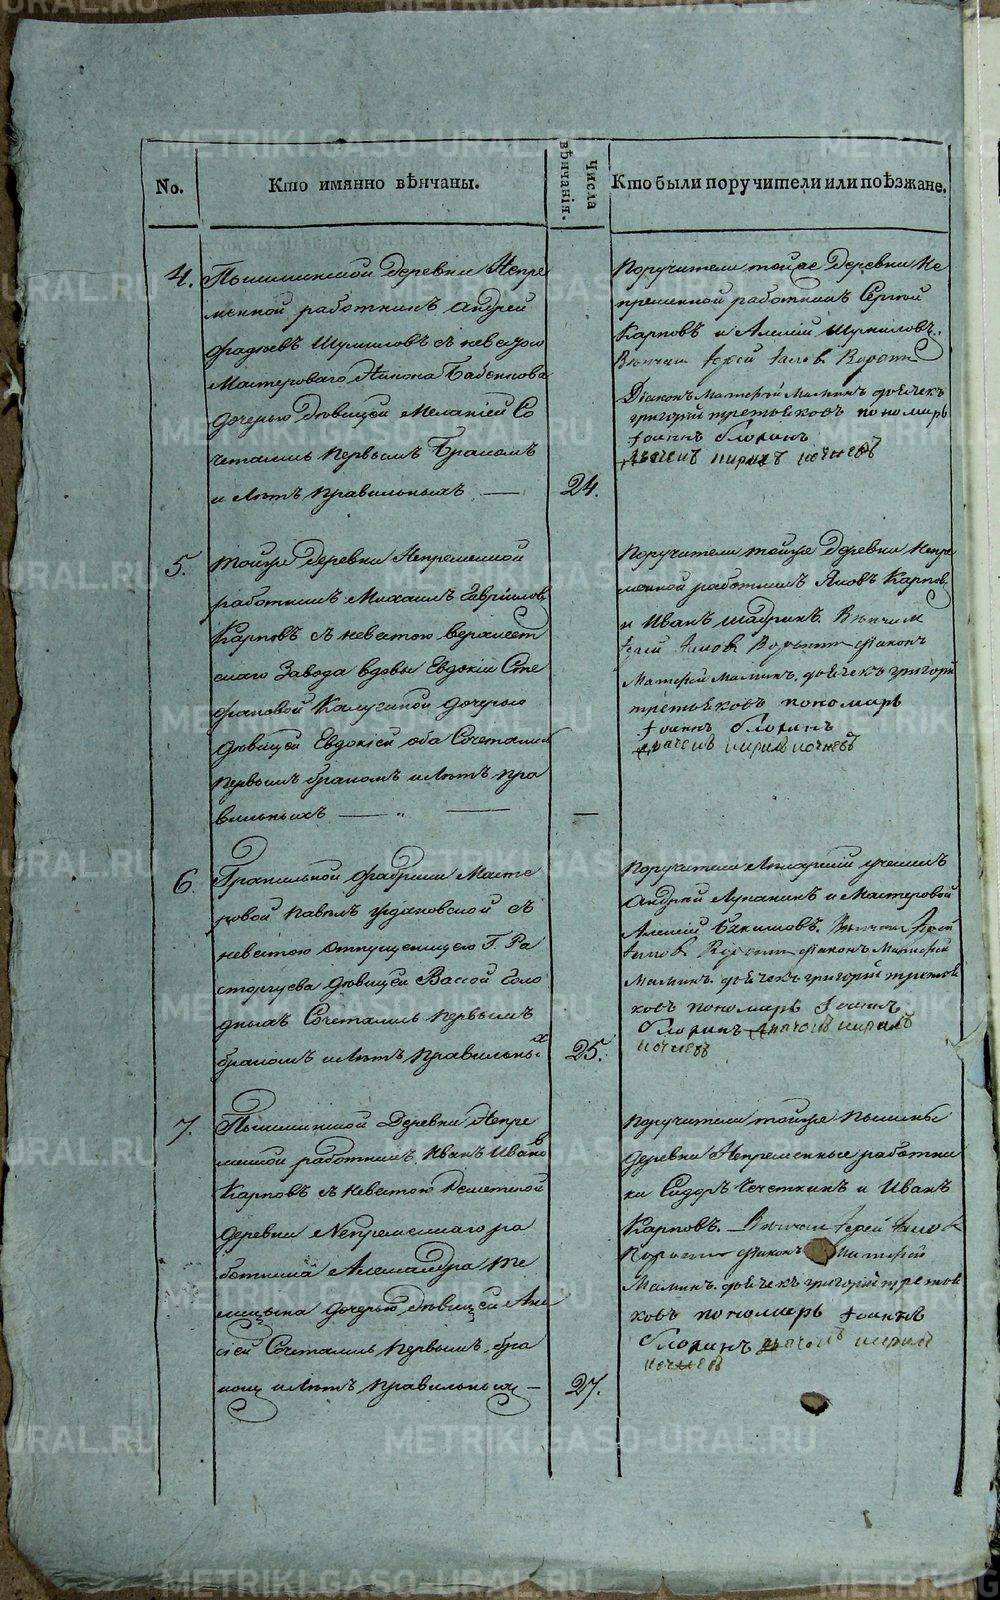 No.
Кто имянно вѣнчаны.
Числа вѣнчанія.
Кто были поручители или поѣзжане.
4.
Пышминской деревни Непре
менной работникъ Андрей
Фадѣевъ Шумиловъ с невѣстою
Мастероваго
дочерью дѣвицей Меланіей Со
четались первымъ бракомъ
и лѣтъ правильныхъ —
24.
Поручители тойже деревни Не
пременной работникъ Сергей
Карповъ и Алексій Шумиловъ.
Вѣнчалъ Іерей Іаковъ
Діаконъ Матѳей Малинъ. дьячекъ
григорій третьяковъ пономарь
Іоаннъ
дьячекъ кирилъ кочневъ
5.
Тойже деревни Непременной
работникъ Михаилъ Гавріиловъ
Карповъ с невѣстою верхисет
скаго Завода вдовы Евдокіи Сте
фановой Калугиной дочерью
дѣвицей Евдокіей оба Сочетались
первымъ бракомъ и лѣтъ пра
вильныхъ — „ —
—
Поручители тойже деревни Непре
менной работникъ Яковъ Карповъ
и Иванъ Шадринъ. Вѣнчалъ
Іерей Іаковъ діаконъ
Матѳей Малинъ. дьячекъ григори
третьяковъ пономарь
Іоаннъ
дьячекъ кирилъ кочневъ
6.
Гранильной фабрики Масте
ровой Павелъ с
невестою отпущенницею Г. Ра
сторгуева дѣвицей Вассой
Сочетались первымъ
бракомъ и лѣтъ правильныхъ
25.
Поручители ученикъ
Андрей Лупанинъ и Мастеровой
Алексій Вѣнчалъ Іерей
Іаковъ діаконъ Матѳей
Малинъ. дьячекъ григорій третья
ковъ пономарь Іоаннъ
дьячекъ кирилъ
кочневъ
7.
Пышминской Деревни Непре
менной работникъ Иванъ Ивановъ
Карповъ с невестою
деревни Непременнаго ра
ботника Александра
дочерью дѣвицей
Сочетались первымъ бра
комъ и лѣтъ правильныхъ —
27.
Поручители тойже Пышмин
деревни Непременные работни
ки Сидоръ Чечеткинъ и Иванъ
Карповъ. Вѣнчалъ Іерей Іаковъ
діаконъ Матѳей
Малинъ. дьячекъ григорій третья
ковъ пономарь Іоаннъ
дьячекъ кирилъ
кочневъ
METRIKI.GASO-URAL.RU